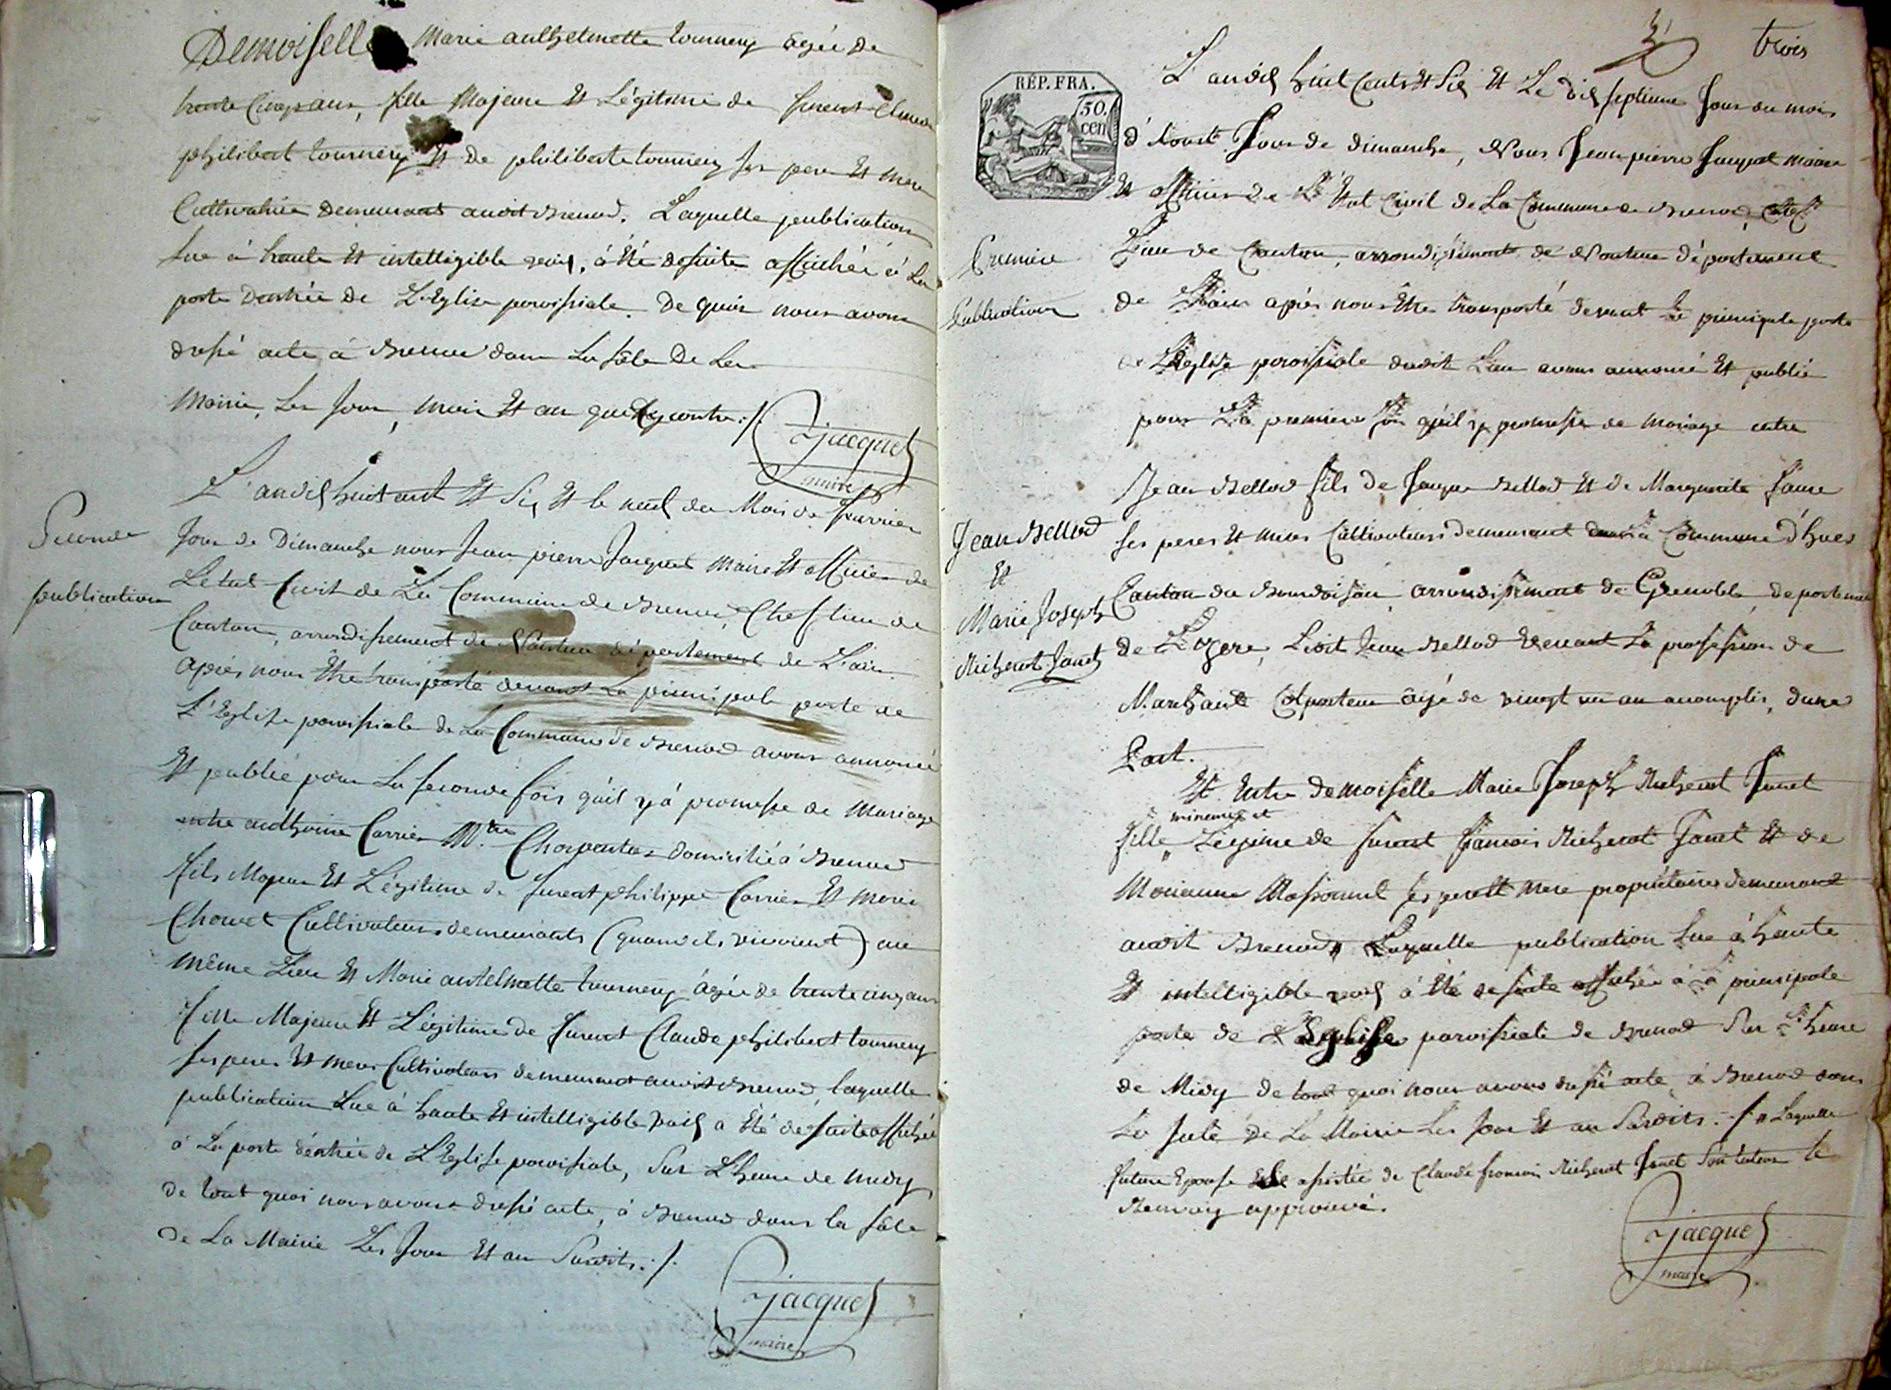 Demoiselle Marie anthelmette tournery agée de
trente Cinq ans, fille Majeure Et Légitime de furent Claude
philibert tournery Et de philiberte tournery ses pere Et mere
Cultivateurs demeurant audit Brenod. Laquelle publication
lue à haute Et intelligible voix, à Eté desuite affichée à La
porte dentrée de L'Eglise paroissiale. De quoi nous avons
dressé acte, à Brenod dans La sale De La
Mairie, Les Jour, mois Et an que Cy contre ./.
Jacquet
maire
Seconde
publication
L'an dix huit cent Et Six Et le neuf du Mois de fevrier
Jour de Dimanche nous Jean pierre Jacquet Maire Et officier de
L'etat Civil de La Commune de Brenod, Chef lieu de
Canton, arrondissement de Nantua département de L'ain
après nous Etre transporté devant La principale porte de
L'Eglise paroissiale de La Commune de Brenod avons annoncé
Et publié pour La seconde fois qu'il y à promesse de Mariage
entre anthoine Carrier M.tre Charpentier domicilié à Brenod
fils Majeur Et Légitime de furent philippe Carrier Et marie
Chouet Cultivateurs demeurants (quand ils vivoient) au
même Lieu Et Marie antelmette tournery âgée de trente cinq ans
fille Majeure Et Légitime de furent Claude philibert tournery
ses peres Et meres Cultivateurs demeurant audit Brenod, laquelle
publication Lue à haute Et intelligible voix a Eté de suite affichée
à La porte d'entrée de L'Eglise paroissiale, Sur L'heure de midy
de tout quoi nous avons dressé acte, à Brenod dans la sale
de La Mairie Les Jour Et an Susdits ./.
Jacquet
maire
3
trois
RÉP. FRA.
50.
cen
L'an dix huit Cents Et Six Et Le dix septieme Jour du mois
d'Aoust Jour de dimanche, Nous Jean pierre Jacquet maire
Et officier de L'Etat Civil de La Commune de Brenod, chef
Lieu de Canton, arrondissement de Nantua département
de L'ain après nous Etre transporté devant La principale porte
de L'Eglise paroissiale dudit Lieu avons annoncé Et publié
pour La premiere fois qu'il y a promesse de mariage entre
Premiere
Publication
Jean Bellod
Et
Marie Joseph
Richerot Janet
Jean Bellod fils de Jacque Bellod Et de Marguerite faure
ses peres Et meres Cultivateurs demeurant dans la Commune d'huez
Canton du Bourdoisan, arrondissement de Grenoble, departement
de L'Izere, Ledit Jean Bellod Exercant La profession de
Marchand Colporteur âgé de vingt un an accomplis, dune
Part.
Et Entre demoiselle Marie Joseph Richerot Janet
mineure et
fille Légitime de furent francois Richerot Janet Et de
Marianne Massonnet ses pere Et Mere propriétaires demeurant
audit Brenod, Laquelle publication Lue à haute
Et intelligible voix à Eté de suite affichée à La principale
porte de L'Eglise paroissiale de Brenod Sur L'heure
de Midy de tout quoi nous avons dressé acte, à Brenod dans
La Sale de La Mairie Les Jour Et an Susdits ./. Laquelle
future Epouse Est assistée de Claude francois Richerot Janet Son tuteur le
Renvoy approuvé.
Jacquet
maire